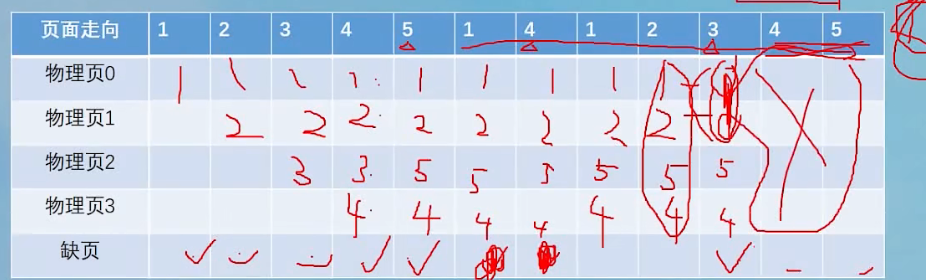 页面走向 1 2 3 4 5 1 4 1 2 3 4 5
物理页0 1 1 1 1 1 1 1 1 1
物理页1 2 2 2 2 2 2 2 2
物理页2 3 3 5 5 5 5 5 5
物理页3 4 4 4 4 4 4 4
缺页 ✓ ✓ ✓ ✓ ✓ ✓